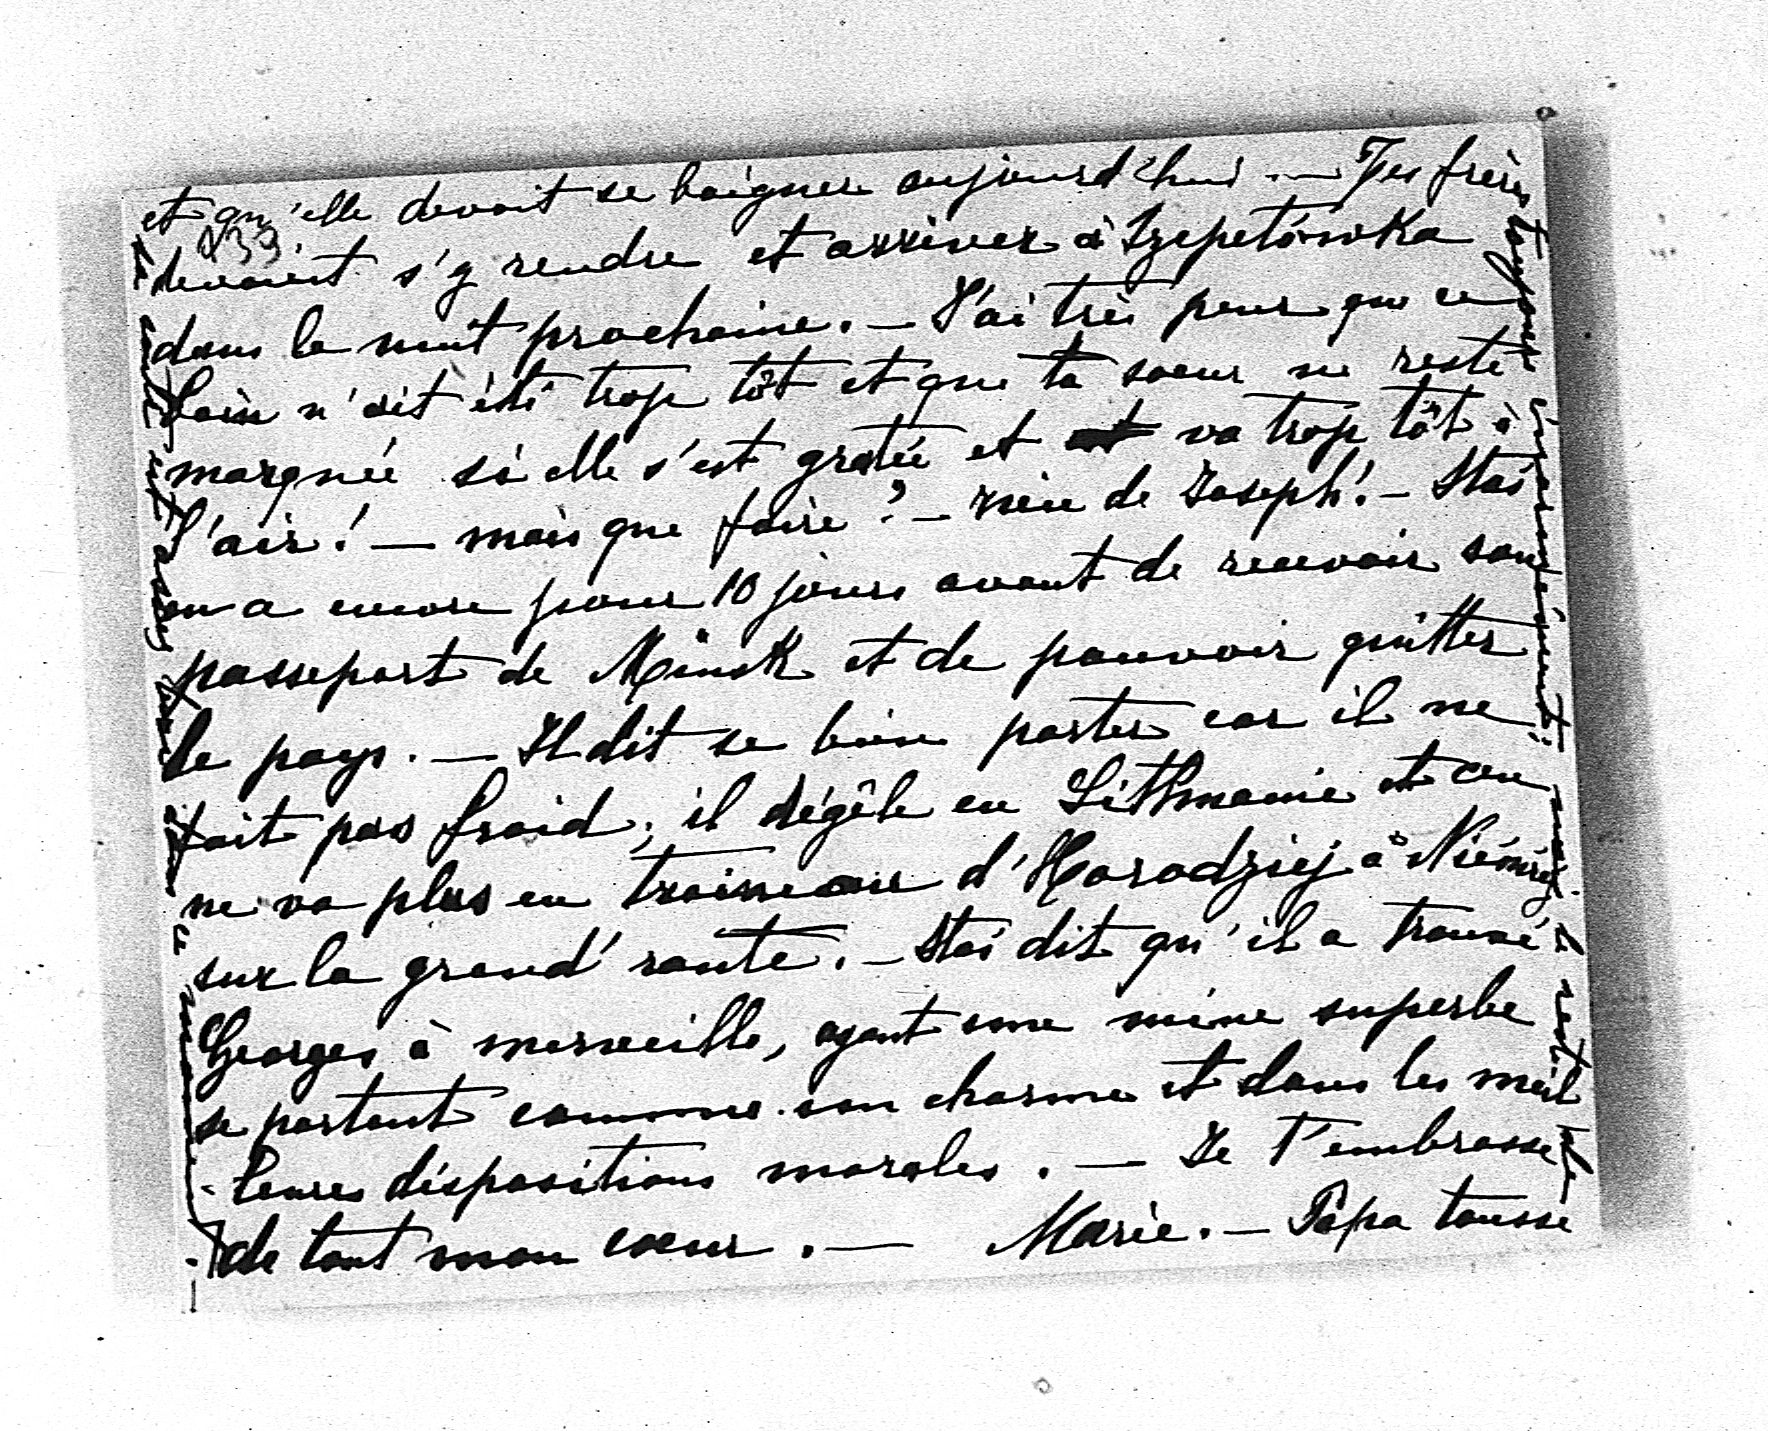 et qu'elle devait se baigner aujourd'hui. — Tes frères
133
devaient s'y rendre et arriver à Szepetówka
dans la nuit prochaine. — J'ai très peur que ce
bain n'ait été trop tôt et que ta soeur ne reste
marquée si elle s'est gratée et va trop tôt à
l'air! — mais que faire? — rien de Joseph! — Staś
en a encore pour 10 jours avant de recevoir son
passeport de Minsk et de pouvoir quitter
le pays. — Il dit se bien porter car il ne
fait pas froid; il dégèle en Lithuanie et on
ne va plus en traineau d'Horodziej à Nieśwież
sur la grand' route. — Staś dit qu'il a trouvé
Georges à merveille, ayant une mine superbe
se portant comme un charme et dans les meil
leures dispositions morales. — Je t'embrasse
de tout mon coeur. — Marie. — Papa tousse
toujours énormément;
mais le reste de
la santé est assez